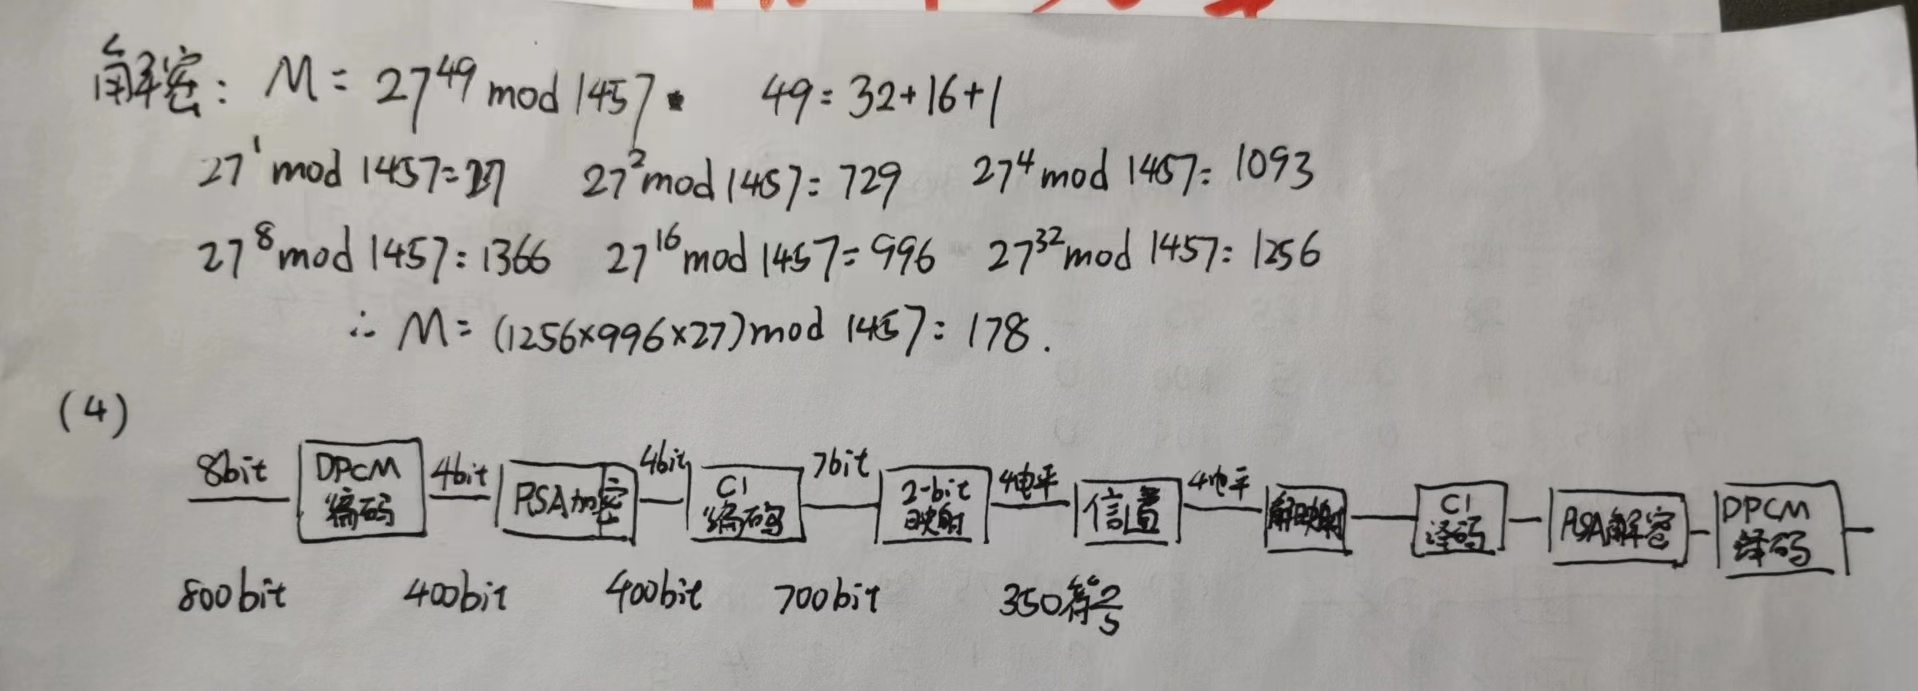 解密: M = 27^49 mod 1457. 49 = 32+16+1
27^1 mod 1457 = 27 27^2 mod 1457 = 729 27^4 mod 1457 = 1093
27^8 mod 1457 = 1366 27^16 mod 1457 = 996 27^32 mod 1457 = 1256
∴ M = (1256×996×27) mod 1457 = 178.
(4)
8bit DPCM编码 4bit RSA加密 4bit C1编码 7bit 2-bit映射 4电平 信道 4电平 解映射 C1译码 RSA解密 DPCM译码
800bit 400bit 400bit 700bit 350符号